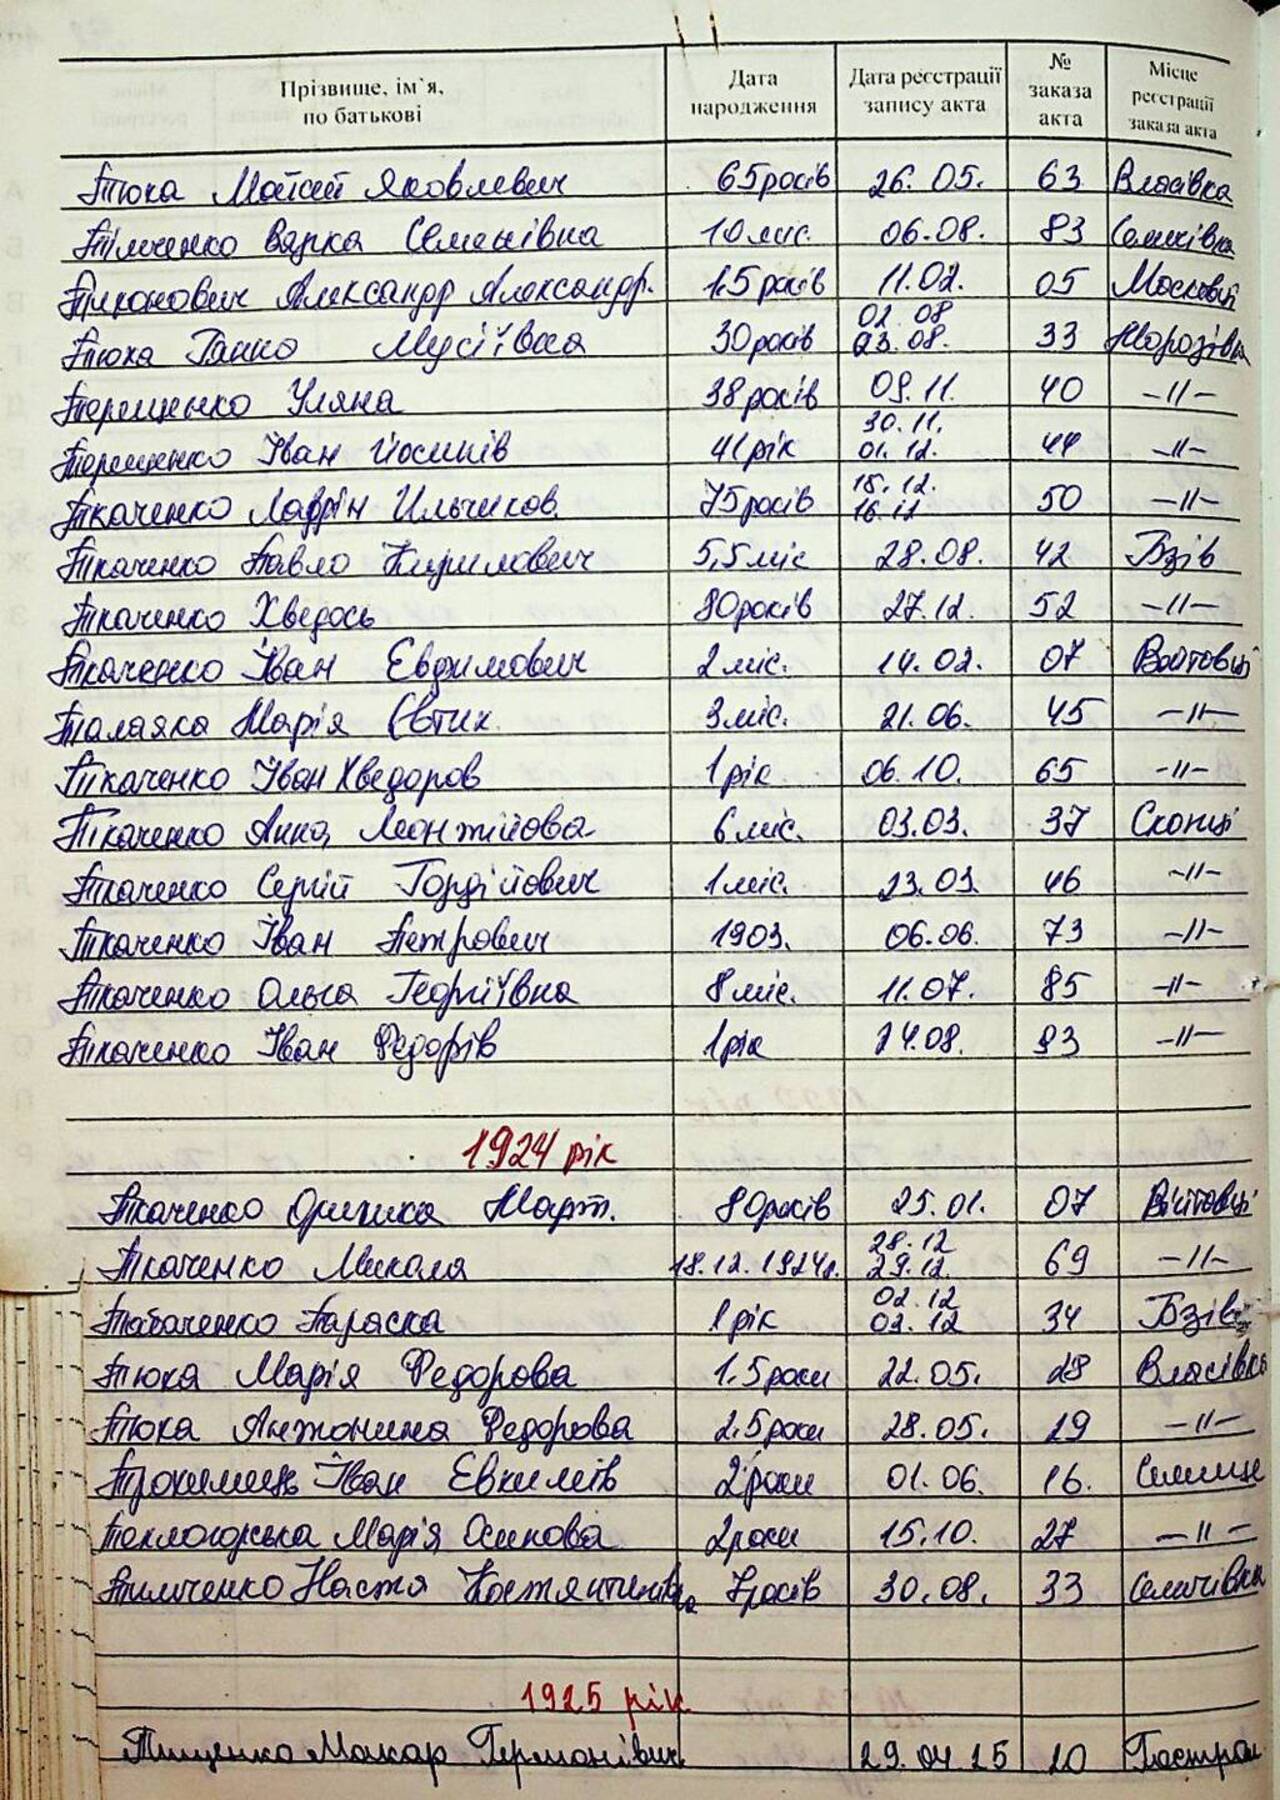 Прізвище, ім`я, по батькові Дата народження Дата реєстрації запису акта № заказа акта Місце реєстрації заказа акта
Тюка Мойсей Яковлевич 65 років 26.05. 63 Власівка
Тімченко Варка Семенівна 10 міс. 06.08. 83 Семківка
Тихонович Александр Александр. 1,5 років 11.02. 05 Московці
Тюка Ганна Мусіївна 30 років 02.08 03.08. 33 Морозівка
Терещенко Уляна 38 років 09.11. 40 -||-
Терещенко Іван Йосипів 41 рік 30.11. 01.12. 44 -||-
Ткаченко Лаврін Ильчиков. 75 років 15.12. 16.12 50 -||-
Ткаченко Павло Кирилович 5,5 міс 28.08. 42 Бзів
Ткаченко Хведось 80 років 27.12. 52 -||-
Ткаченко Іван Евдимович 2 міс. 14.02. 07 Войтовці
Талаяка Марія Євтих. 3 міс. 21.06. 45 -||-
Ткаченко Іван Хведоров 1 рік 06.10. 65 -||-
Ткаченко Анна Леонтійова 6 міс. 03.03. 37 Скопці
Ткаченко Сергій Гордійович 1 міс. 23.03. 46 -||-
Ткаченко Іван Петрович 1903. 06.06. 73 -||-
Ткаченко Ольга Георгіївна 8 міс. 11.07. 85 -||-
Ткаченко Іван Федорів 1 рік 14.08. 93 -||-
1924 рік
Ткаченко Оришка Март. 80 років 25.01. 07 Війтовці
Ткаченко Микола 18.12.1924р. 28.12 29.12. 69 -||-
Табаченко Параска 1 рік 02.12 03.12 34 Бзів
Тюка Марія Федорова 1,5 роки 22.05. 28 Власівка
Тюка Антонина Федорова 2,5 роки 28.05. 29 -||-
Іван Евхимів 2 роки 01.06. 16. Селище
Теплогорська Марія Осипова 2 роки 15.10. 27 -||-
Тимченко Настя Костянтинівна 7 років 30.08. 33 Семичівка
1925 рік
Тищенко Макар Германівич 29.04.25 20 Гостром